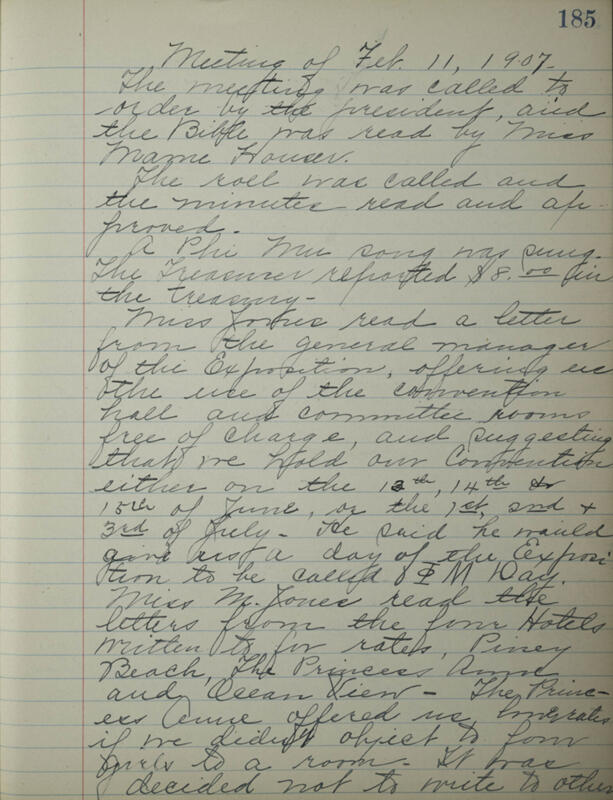 185
Meeting of Feb. 11, 1907.
The meeting was called to
order by the president, and
the Bible was read by Miss
Mame Houser.
The roll was called and
the minutes read and ap-
proved.
A Phi Mu song was sung.
The Treasurer reported $8.00 in
the treasury-
Miss Jones read a letter
from the general manager
of the Exposition, offering us
the use of the convention
hall and committee rooms
free of charge, and suggesting
that we hold our Convention
either on the 13th, 14th &
15th of June, or the 1st, 2nd &
3rd of July- He said he would
give us a day of the Exposi-
tion to be called Φ M Day.
Miss M. Jones read the
letters from the four Hotels
written to for rates, Piney
Beach, The Princess Anne
and Ocean View - The Princ-
ess Anne offered us rates
if we didn't object to four
girls to a room- It was
decided not to write to other